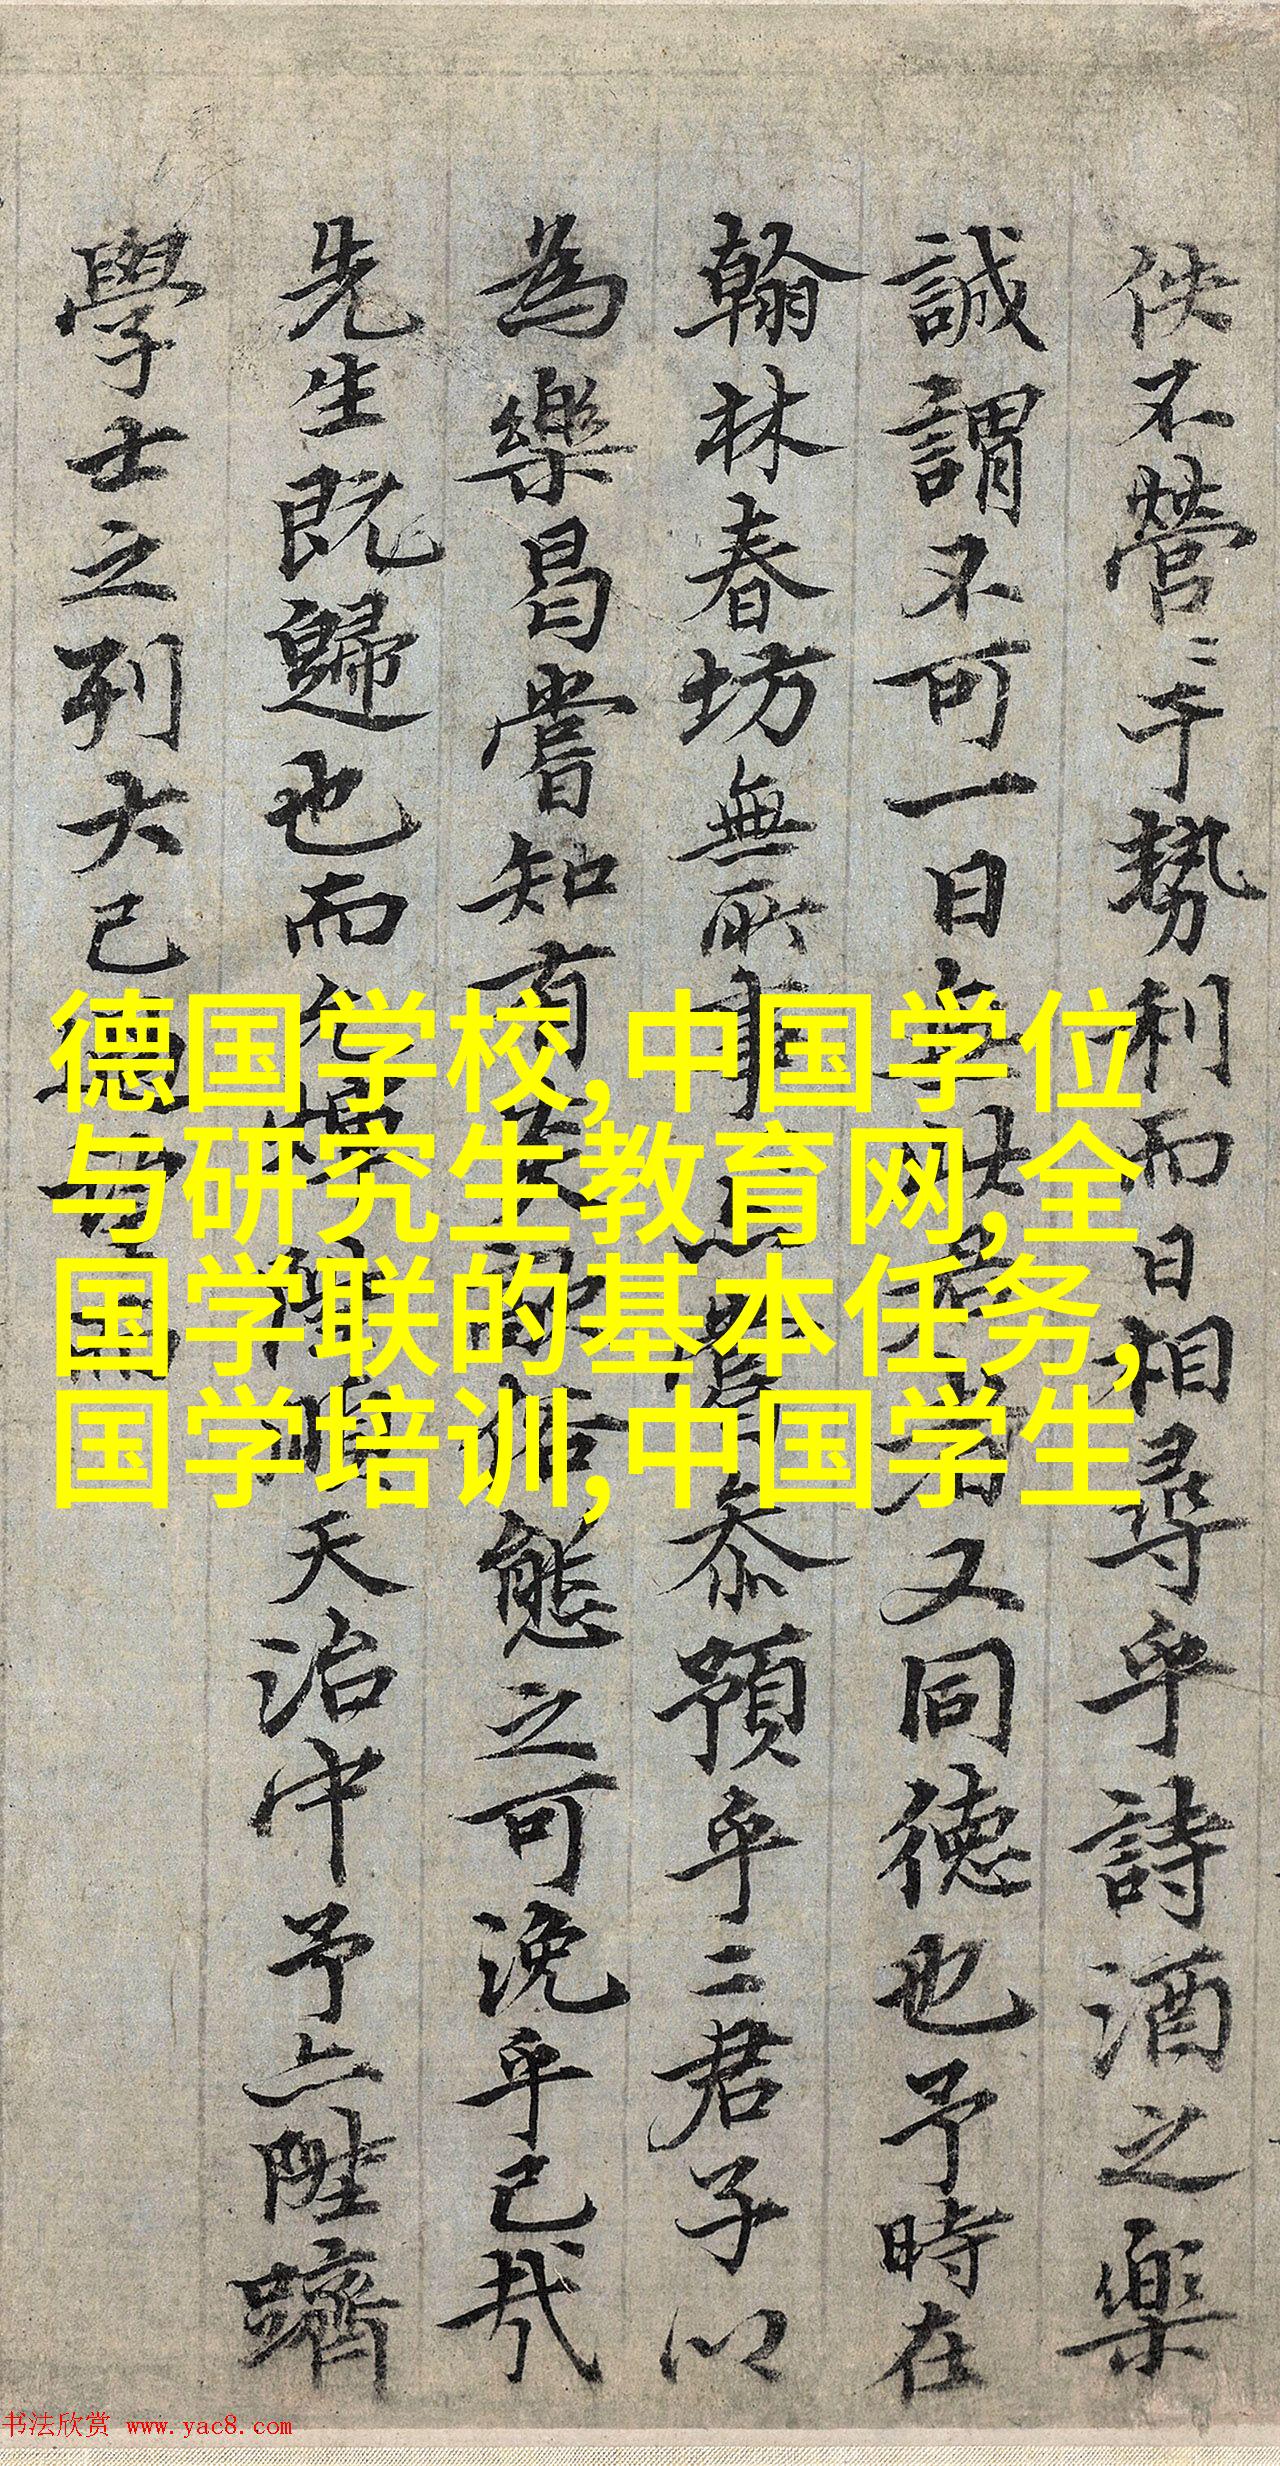 佚不營〻于勢利而日相尋乎詩酒之樂
誠謂不可一日無此君者又同德也予時在
翰林春坊無所事
叅預乎二君子以
為樂曷嘗知有
態之可浼乎己哉
先生既歸也而
天治中予亦陞躋
學士之列大己
德国学校,中国学位
与研究生教育网,全
国学联的基本任务,
国学培训,中国学生
书法欣赏 www.yac8.com